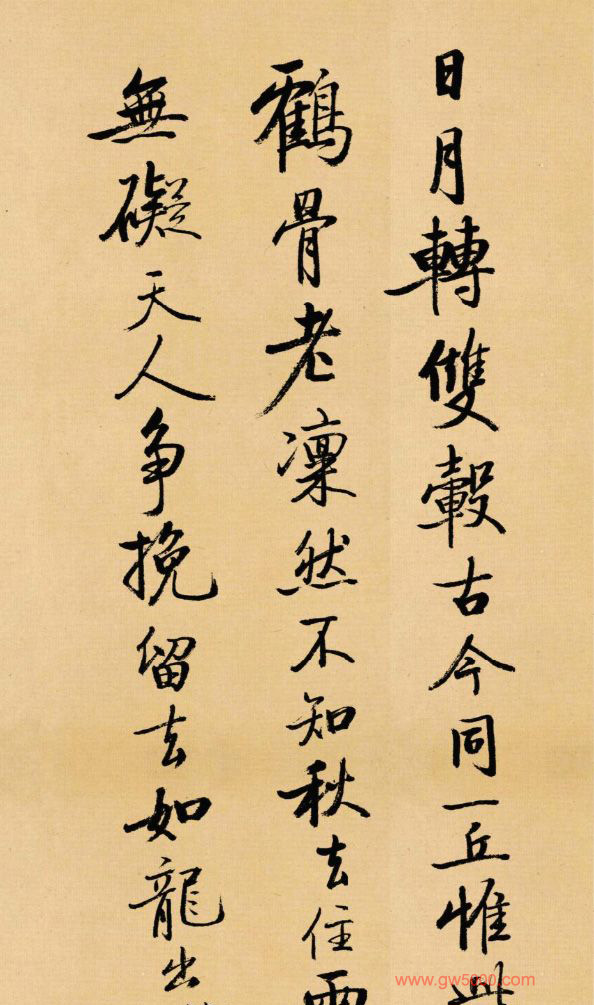 日月轉雙轂古今同一丘惟此
鶴骨老凜然不知秋去住兩
無礙天人争挽留去如龍出
www.gw5000.com